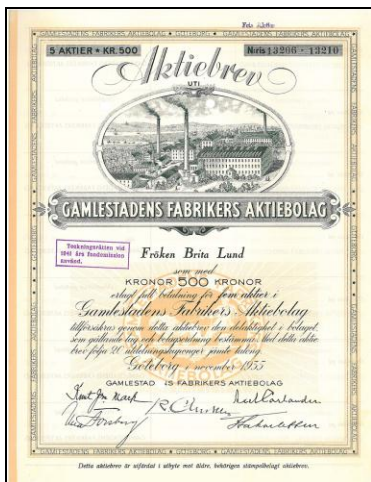 Fria Aktier
5 AKTIER ★ KR. 500
N:ris 13206 - 13210
GAMLESTADENS FABRIKERS AKTIEBOLAG · GÖTEBORG
Aktiebrev
UTI
GAMLESTADENS FABRIKERS AKTIEBOLAG
Teckningsrätten vid
1943 års fondemission
använd.
Fröken Brita Lund
som med
KRONOR 500 KRONOR
erlagt full betalning för fem aktier i
Gamlestadens Fabrikers Aktiebolag
tillförsäkras genom detta aktiebrev den delaktighet i bolaget,
som gällande lag och bolagsordning bestämma. Med detta aktie-
brev följa 20 utdelningskuponger jämte talong.
Göteborg i november 1935
GAMLESTADENS FABRIKERS AKTIEBOLAG
Detta aktiebrev är utfärdat i utbyte mot äldre, behörigen stämpelbelagt aktiebrev.